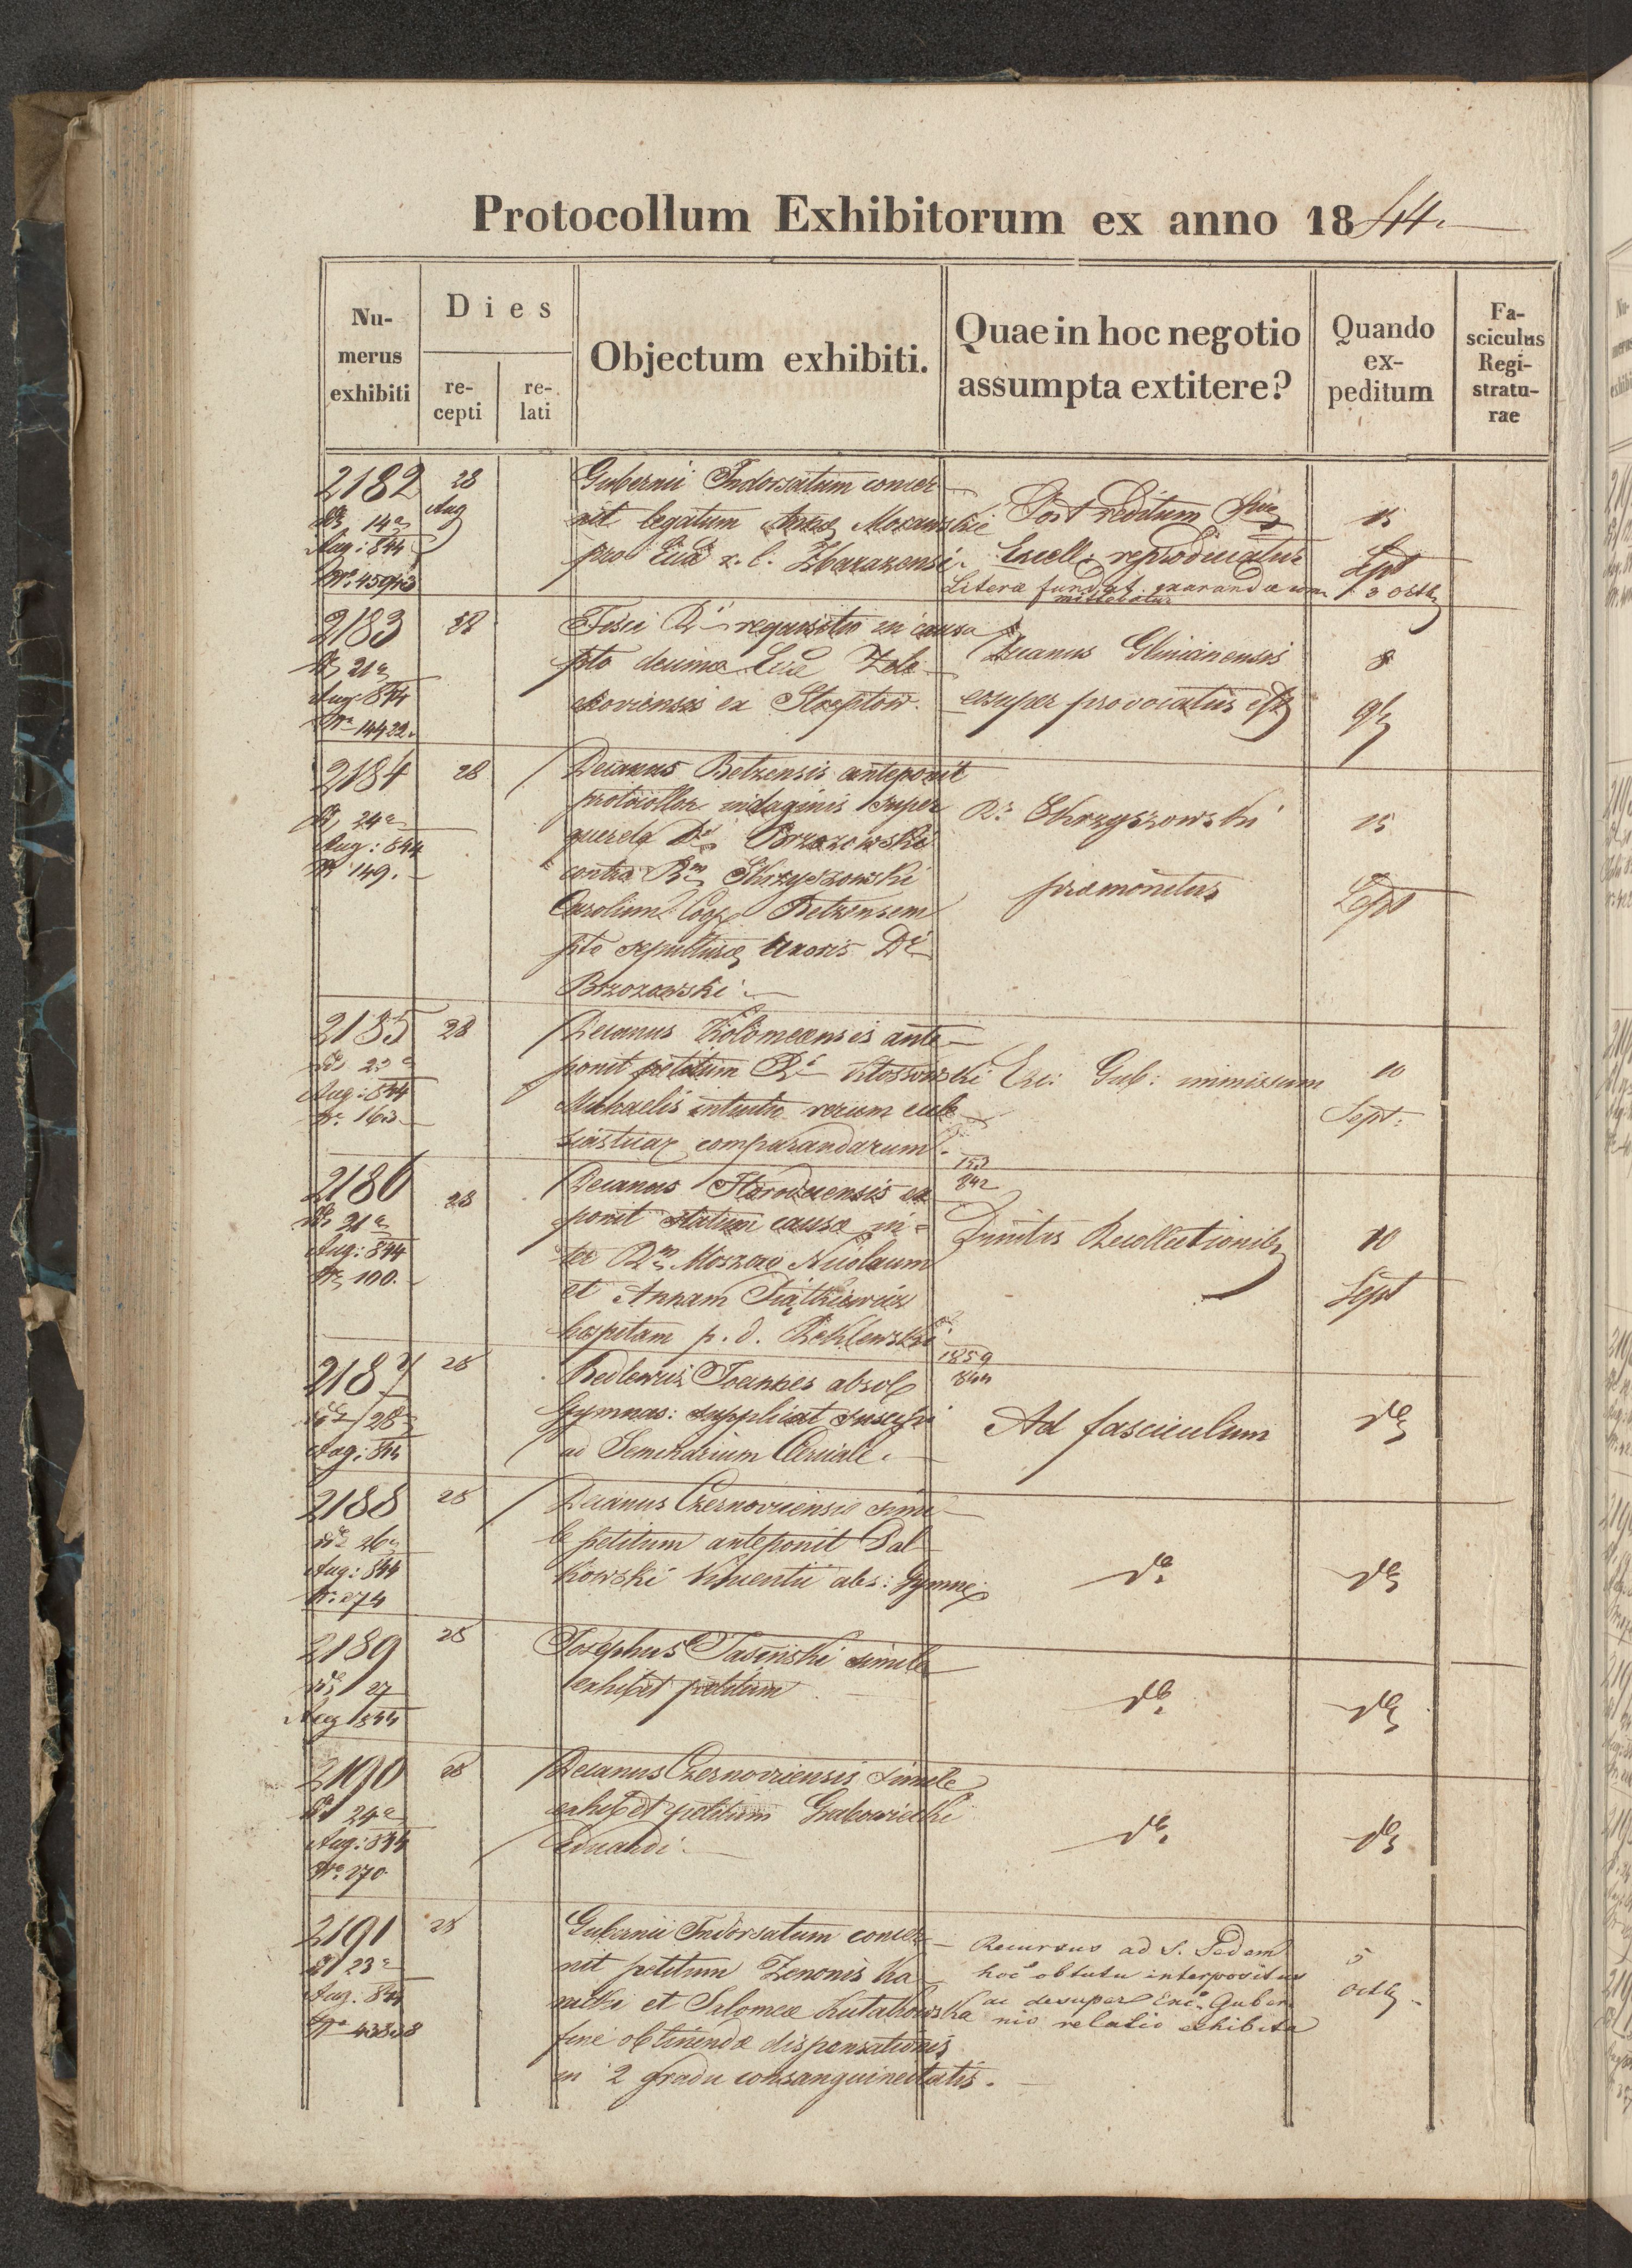 Protocollum Exhibitorum ex anno 1844.
Nu-
merus
exhibiti
Dies
re-
cepti
re-
lati
Objectum exhibiti.
Quae in hoc negotio
assumpta extitere?
Quando
ex-
peditum
Fa-
sciculus
Regi-
stratu-
rae
2182
14a
Aug: 844
28
Aug
Gubernii Indorsatum concer
nit legatum
pro r. l. Zbarazensi.
Post reditum Suae
Excell: reproducatur
15
Sept
3 octb
2183
21a
Aug 844
No 14422.
28
Fisci requisitio in causa
pto decimae
ex
Decanus Glinianensis
desuper provocatus est
8
9b
2184
24a
Aug: 844
No 149.
28
Decanus Betzensis anteponit
protocollar indaginis super
querela Di Brzozowski
contra Rm Skrzyszowski
Carolum Coop Betzensem
pto sepulturae uxoris Di
Brzozowski
R. Skrzyszowski
praemonitus
15
Sept
2185
Aug: 844
No 163
28
Decanus Kolomeensis ante-
ponit petitum
Michaelis intuitu rerum eccle
siasticar comparandarum.
Exc: Gub: immissum
10
Sept:
2186
21a
Aug: 844
No 100.
28
Decanus ex
ponit statum causae in-
ter Rm Nicolaum
et Annam Piątkiewicz
hospitam p. d.
842
Dimitas Recollectionib
10
Sept
2187
28
Aug: 844
28
Joannes absol
Gymnas: supplicat suscipi
ad Seminarium Clericale.
1859
844
Ad fasciculum
do
2188
de 26
Aug: 844
No 274
28
Decanus Czernoviensis simi-
le petitum anteponit Pal
kowski Vincentii abs: Gymna
do
do
2189
de 27
Aug 844
28
Josephus Jasinski simile
exhibet petitum
do
do
2190
24a
Aug: 844
No 270
28
Decanus Czernoviensis simile
exhibet petitum Grabowiecki
Eduardi
do
do
2191
23a
Aug. 844
28
Gubernii Indorsatum concer-
nit petitum Zenonis Ka
et Salomeae
fine obtinendae dispensationis
in 2 gradu consanguineitatis.
Recursus ad S. Sedem
hoc obtutu interpositus
ac desuper Exc. Guber
nio relatio exhibita
5
octb